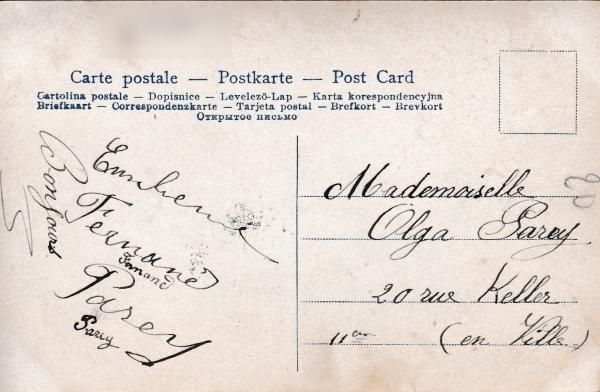 Carte postale — Postkarte — Post Card
Cartolina postale — Dopisnice — Levelező-Lap — Karta korespondencyjna
Briefkaart — Correspondenzkarte — Tarjeta postal — Brefkort — Brevkort
Открытое письмо
Bonjours
Fernand
Fernand
Parey
Parey
Mademoiselle
Olga Parey
20 rue Keller
11em (en Ville)